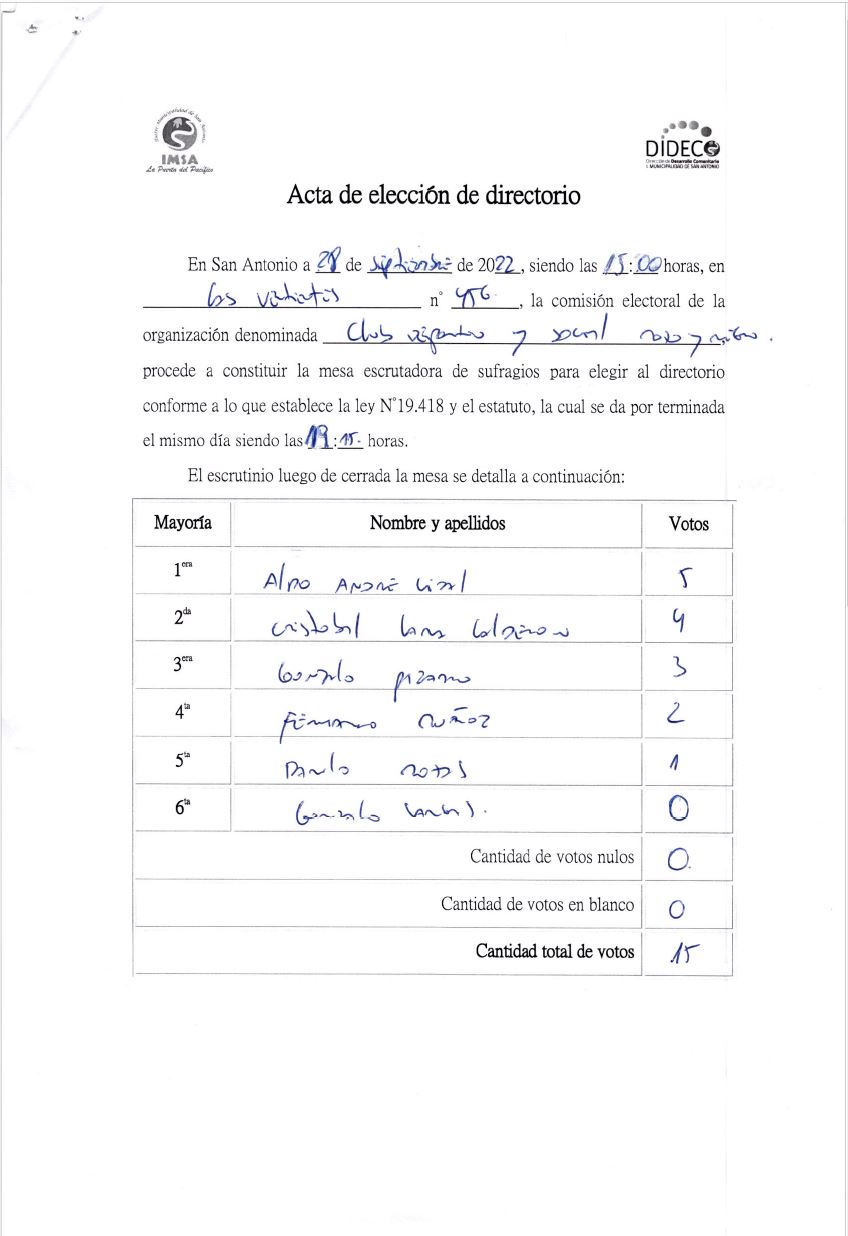 Ilustre Municipalidad de San Antonio
IMSA
La Puerta del Pacífico
DIDECO
Dirección de Desarrollo Comunitario
I. MUNICIPALIDAD DE SAN ANTONIO
Acta de elección de directorio
En San Antonio a 28 de septiembre de 2022, siendo las 15:00 horas, en
Las n° 456, la comisión electoral de la
organización denominada Club deportivo y social rojo y negro.
procede a constituir la mesa escrutadora de sufragios para elegir al directorio
conforme a lo que establece la ley N°19.418 y el estatuto, la cual se da por terminada
el mismo día siendo las 19:15 horas.
El escrutinio luego de cerrada la mesa se detalla a continuación:
Mayoría Nombre y apellidos Votos
1era Aldo André 5
2da Cristobal 4
3era Gonzalo Pizarro 3
4ta Fernando Muñoz 2
5ta Danilo Rojas 1
6ta Gonzalo 0
Cantidad de votos nulos 0
Cantidad de votos en blanco 0
Cantidad total de votos 15